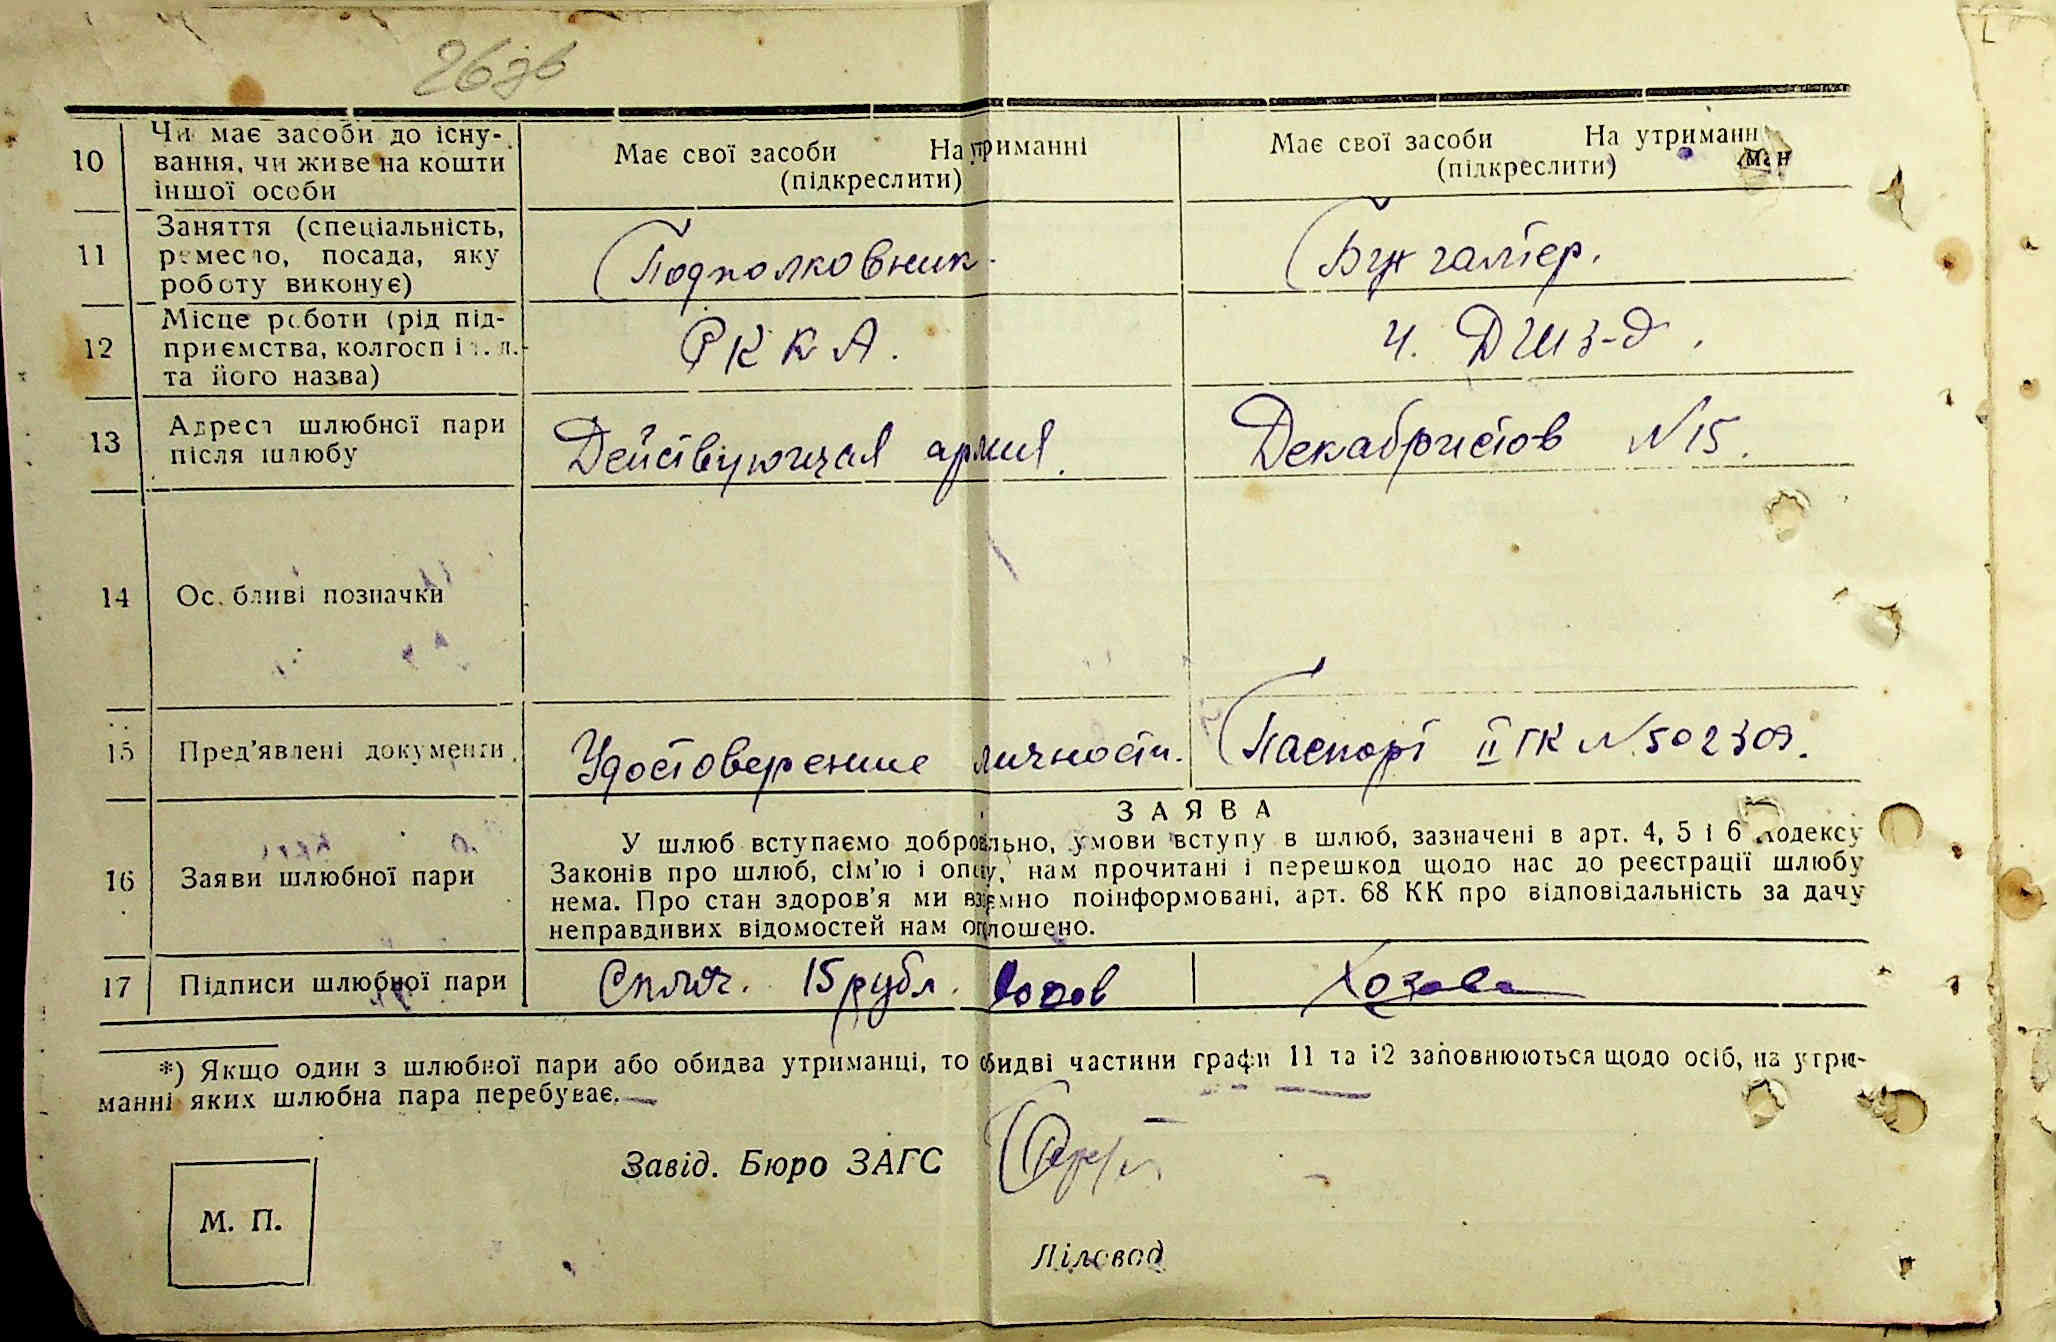 10 Чи має засоби до існу-
вання, чи живе на кошти
іншої особи
Має свої засоби На утриманні
(підкреслити)
Має свої засоби На утриманні
(підкреслити)
11 Заняття (спеціальність,
ремесло, посада, яку
роботу виконує)
Подполковник.
Бухгалтер.
12 Місце роботи (рід під-
приємства, колгосп і т. п.
та його назва)
РККА.
ч. ДШЗ-д.
13 Адреса шлюбної пари
після шлюбу
Действующая армия.
Декабристов N 15.
14 Особливі позначки
15 Пред'явлені документи
Удостоверение личности.
Паспорт II ГК N 502309.
16 Заяви шлюбної пари
ЗАЯВА
У шлюб вступаємо добровільно, умови вступу в шлюб, зазначені в арт. 4, 5 і 6 Кодексу
Законів про шлюб, сім'ю і опіку, нам прочитані і перешкод щодо нас до реєстрації шлюбу
нема. Про стан здоров'я ми взаємно поінформовані, арт. 68 КК про відповідальність за дачу
неправдивих відомостей нам оголошено.
17 Підписи шлюбної пари
15 рубл. Хозова
*) Якщо один з шлюбної пари або обидва утриманці, то обидві частини графи 11 та 12 заповнюються щодо осіб, на утри-
манні яких шлюбна пара перебуває.
Завід. Бюро ЗАГС
М. П.
Діловод